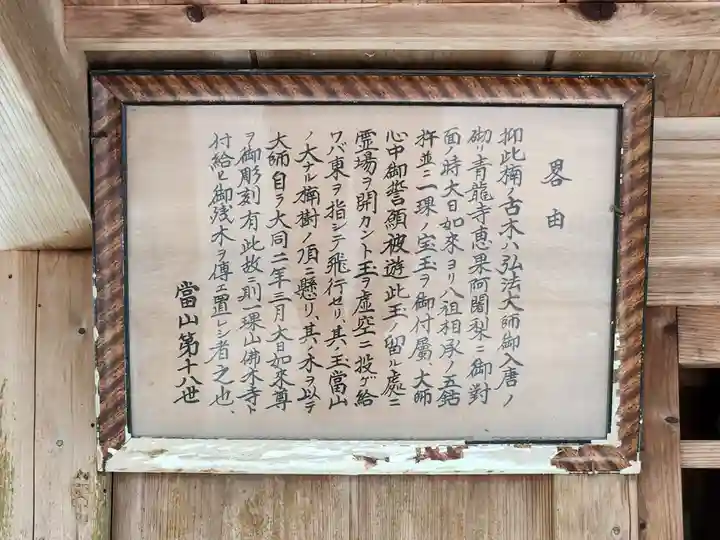 畧由
抑此楠ノ古木ハ弘法大師御入唐ノ
砌リ青龍寺恵果阿闍梨ニ御對
面ノ時大日如來ヨリ八祖相承ノ五鈷
杵並ニ一顆ノ宝玉ヲ御付屬、大師
心中御誓願被遊此玉ノ留ル處ニ
霊場ヲ開カント玉ヲ虚空ニ投ゲ給
ワバ東ヲ指シテ飛行セリ、其ノ玉當山
ノ大ナル楠樹ノ頂ニ懸リ、其ノ木ヲ以テ
大師自ラ大同二年三月大日如來尊
ヲ御彫刻有此故ニ則一顆山佛木寺ト
付給ヒ御残木ヲ傳エ置レシ者之也、
當山第十八世